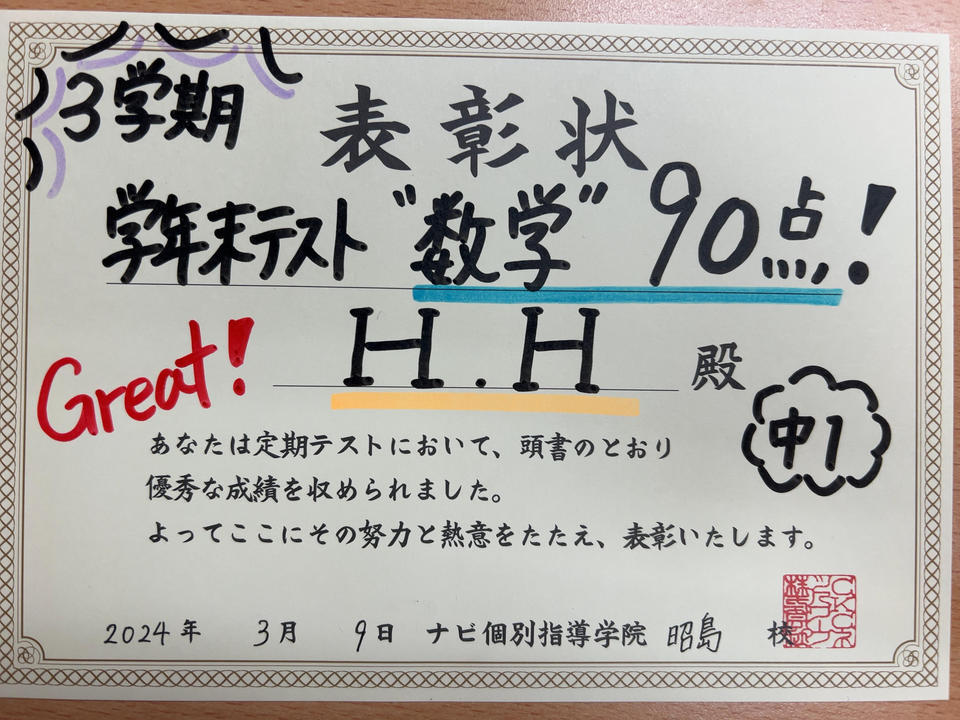 3学期
表彰状
学年末テスト "数学" 90点!
Great!
H.H 殿
中1
あなたは定期テストにおいて、頭書のとおり
優秀な成績を収められました。
よってここにその努力と熱意をたたえ、表彰いたします。
2024年 3月 9日 ナビ個別指導学院 昭島 校